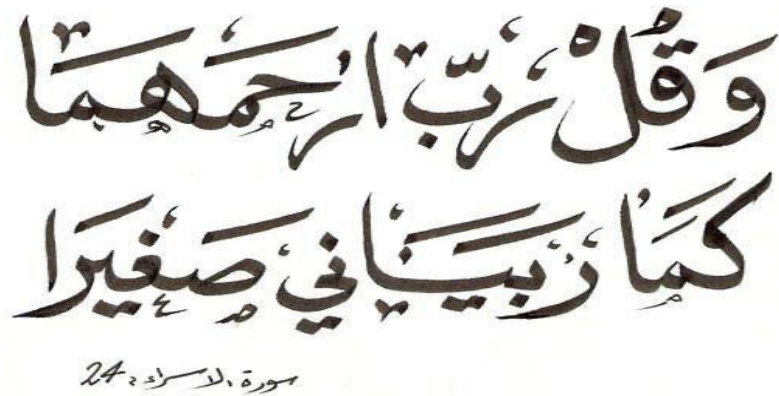 وَقُلْ رَبِّ ارْحَمْهُمَا
كَمَا رَبَّيَانِي صَغِيرًا
سورة الاسراء، 24